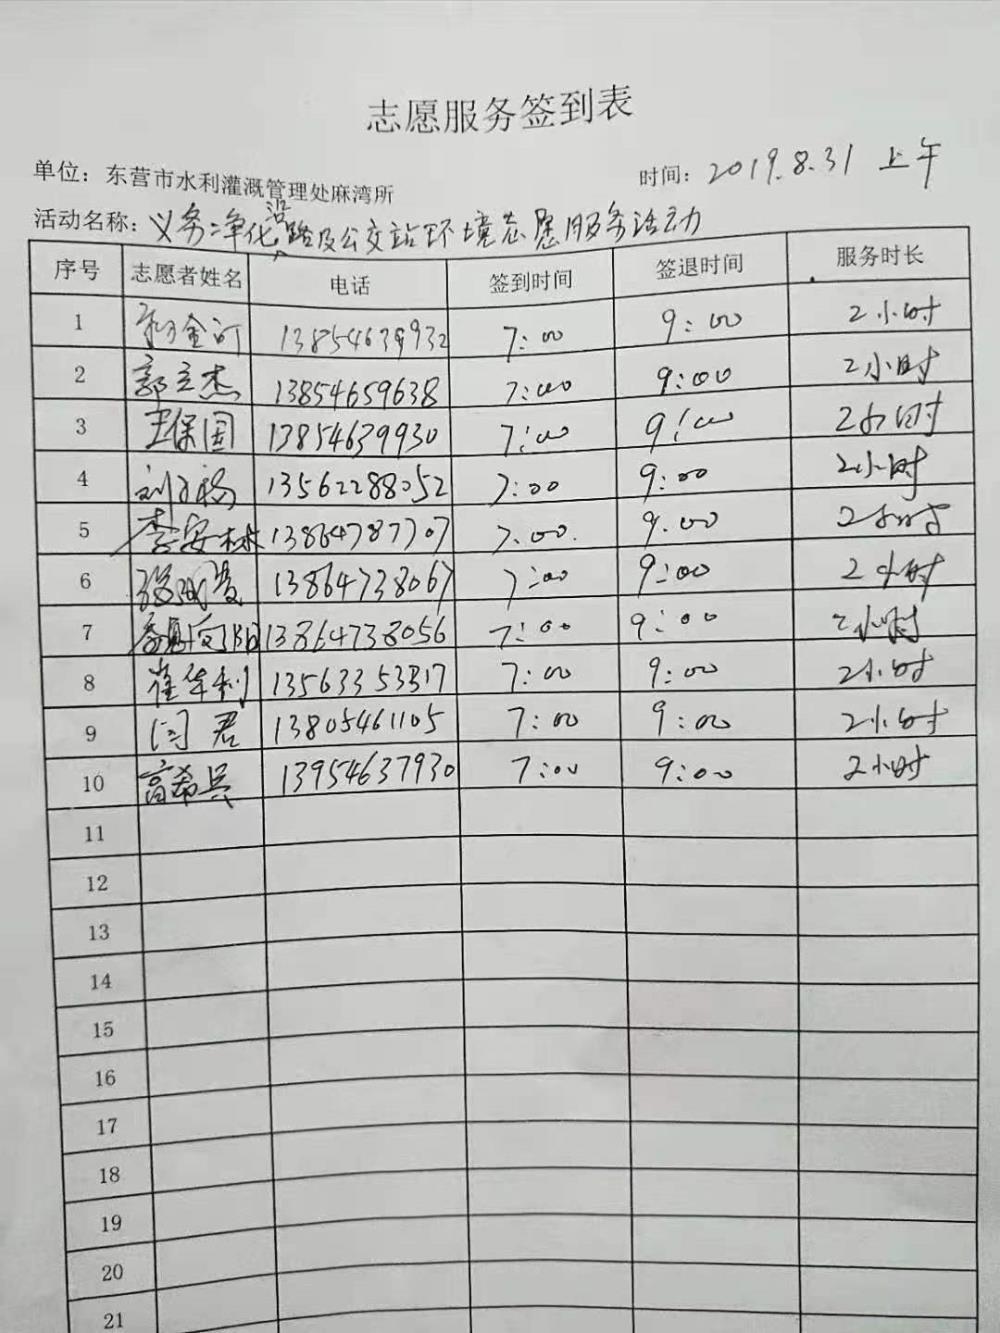 志愿服务签到表
单位：东营市水利灌溉管理处麻湾所
时间：2019.8.31 上午
活动名称：义务净化沿路及公交站环境志愿服务活动
序号 志愿者姓名 电话 签到时间 签退时间 服务时长
1 13854639932 7:00 9:00 2小时
2 郭立杰 13854659638 7:00 9:00 2小时
3 王保国 13854639930 7:00 9:00 2小时
4 13562288052 7:00 9:00 2小时
5 李安林 13864787707 7:00 9:00 2小时
6 13864738067 7:00 9:00 2小时
7 13864738056 7:00 9:00 2小时
8 崔华利 13563353317 7:00 9:00 2小时
9 闫君 13805461105 7:00 9:00 2小时
10 高希兵 13954637930 7:00 9:00 2小时
11
12
13
14
15
16
17
18
19
20
21